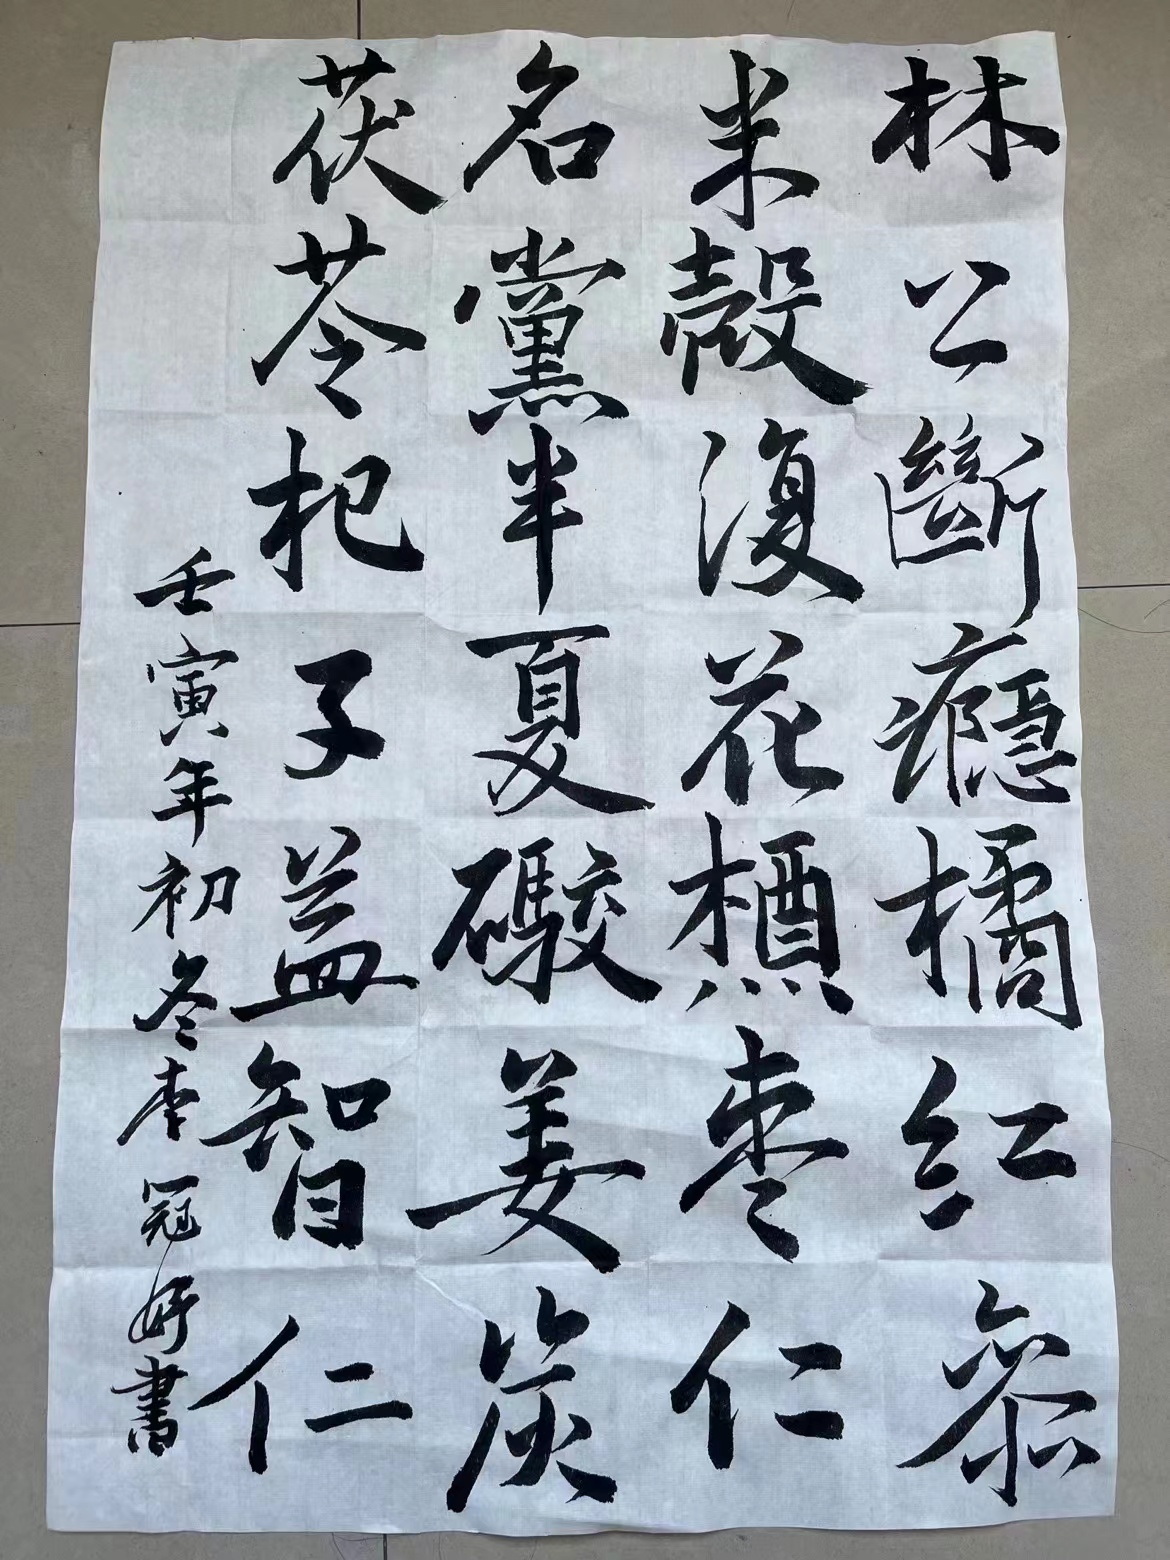 林公斷癮橘红
米殼復花槱枣仁
名黨半夏礮姜炭
茯苓杞子益智仁
壬寅年初冬李冠妤書